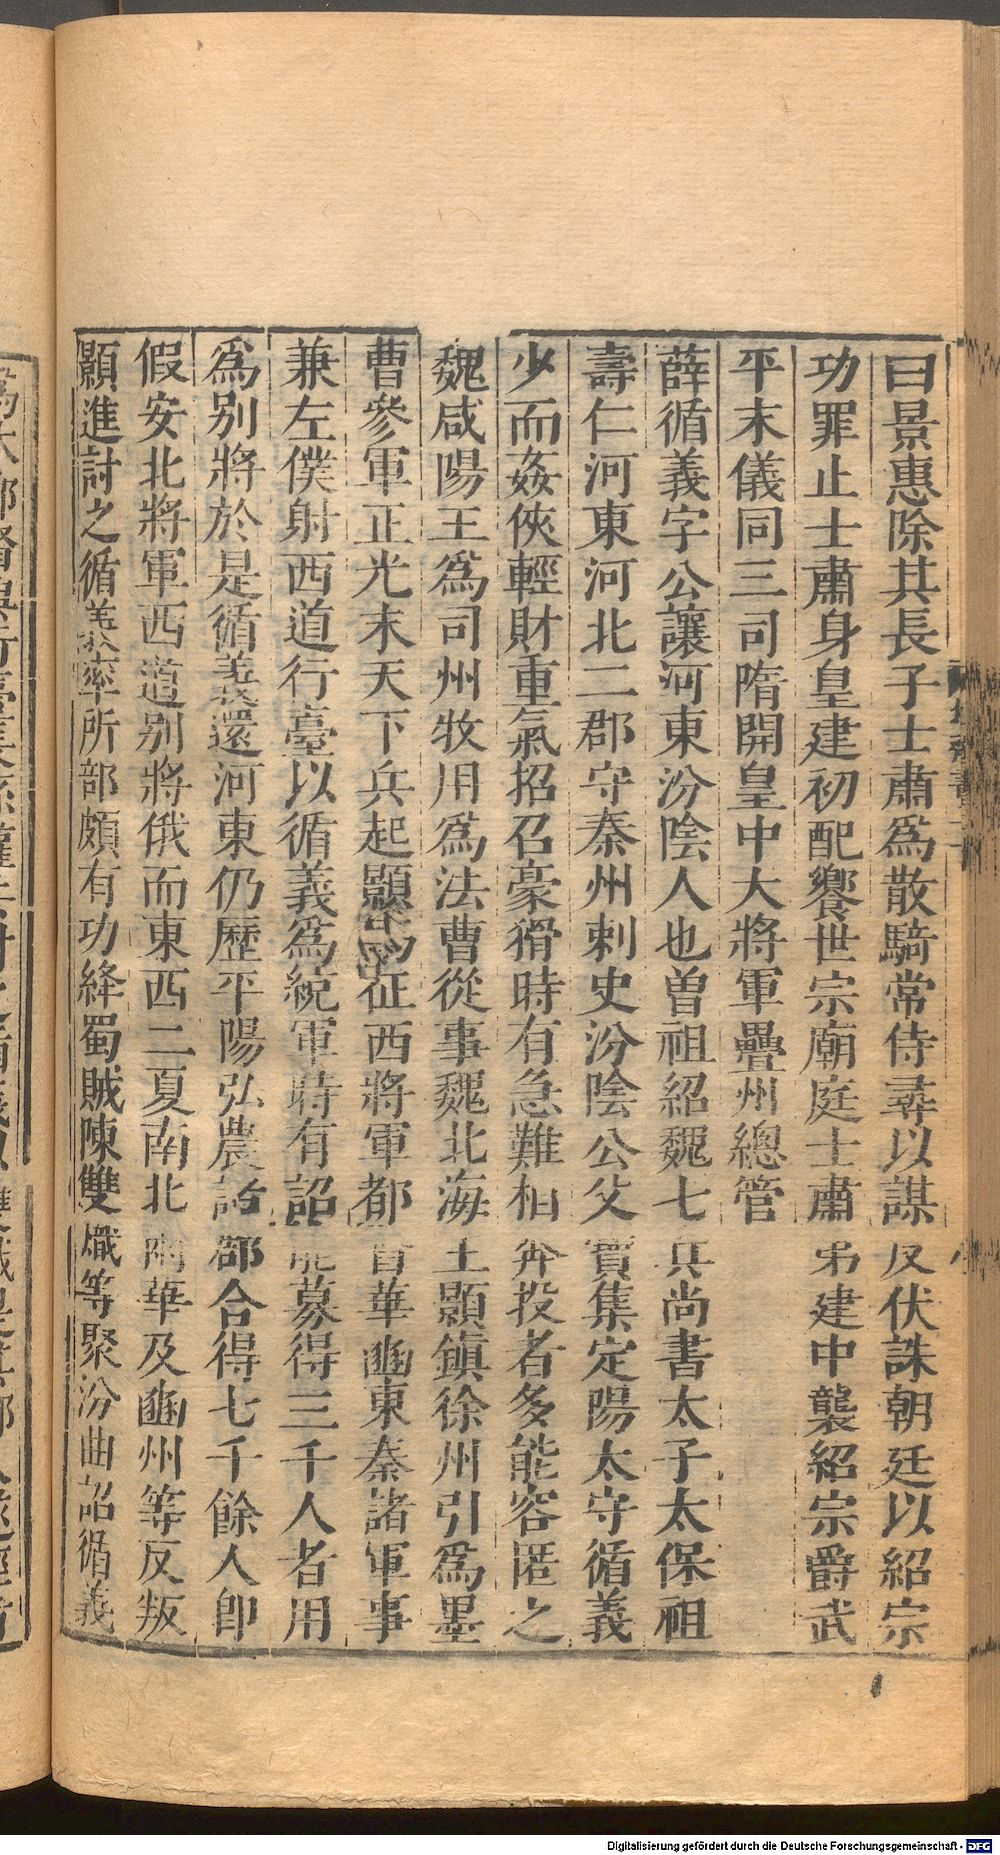 曰景惠除其長子士肅爲散騎常侍尋以謀反伏誅朝廷以紹宗
功罪止士肅身皇建初配饗世宗廟庭士肅弟建中襲紹宗爵武
平末儀同三司隋開皇中大將軍疊州總管
薛循義字公讓河東汾陰人也曽祖紹魏七兵尚書太子太保祖
壽仁河東河北二郡守秦州刺史汾陰公父寶集定陽太守循義
少而姦俠輕財重氣招召豪猾時有急難相奔投者多能容匿之
魏咸陽王爲司州牧用爲法曹從事魏北海王顥鎮徐州引爲墨
曹參軍正光末天下兵起顥爲征西將軍都督華豳東秦諸軍事
兼左僕射西道行臺以循義爲統軍時有詔能募得三千人者用
爲别將於是循義還河東仍歷平陽弘農諸郡合得七千餘人卽
假安北將軍西道别將俄而東西二夏南北兩華及豳州等反叛
顥進討之循義率所部頗有功絳蜀賊陳雙熾等聚汾曲詔循義
Digitalisierung gefördert durch die Deutsche Forschungsgemeinschaft - DFG